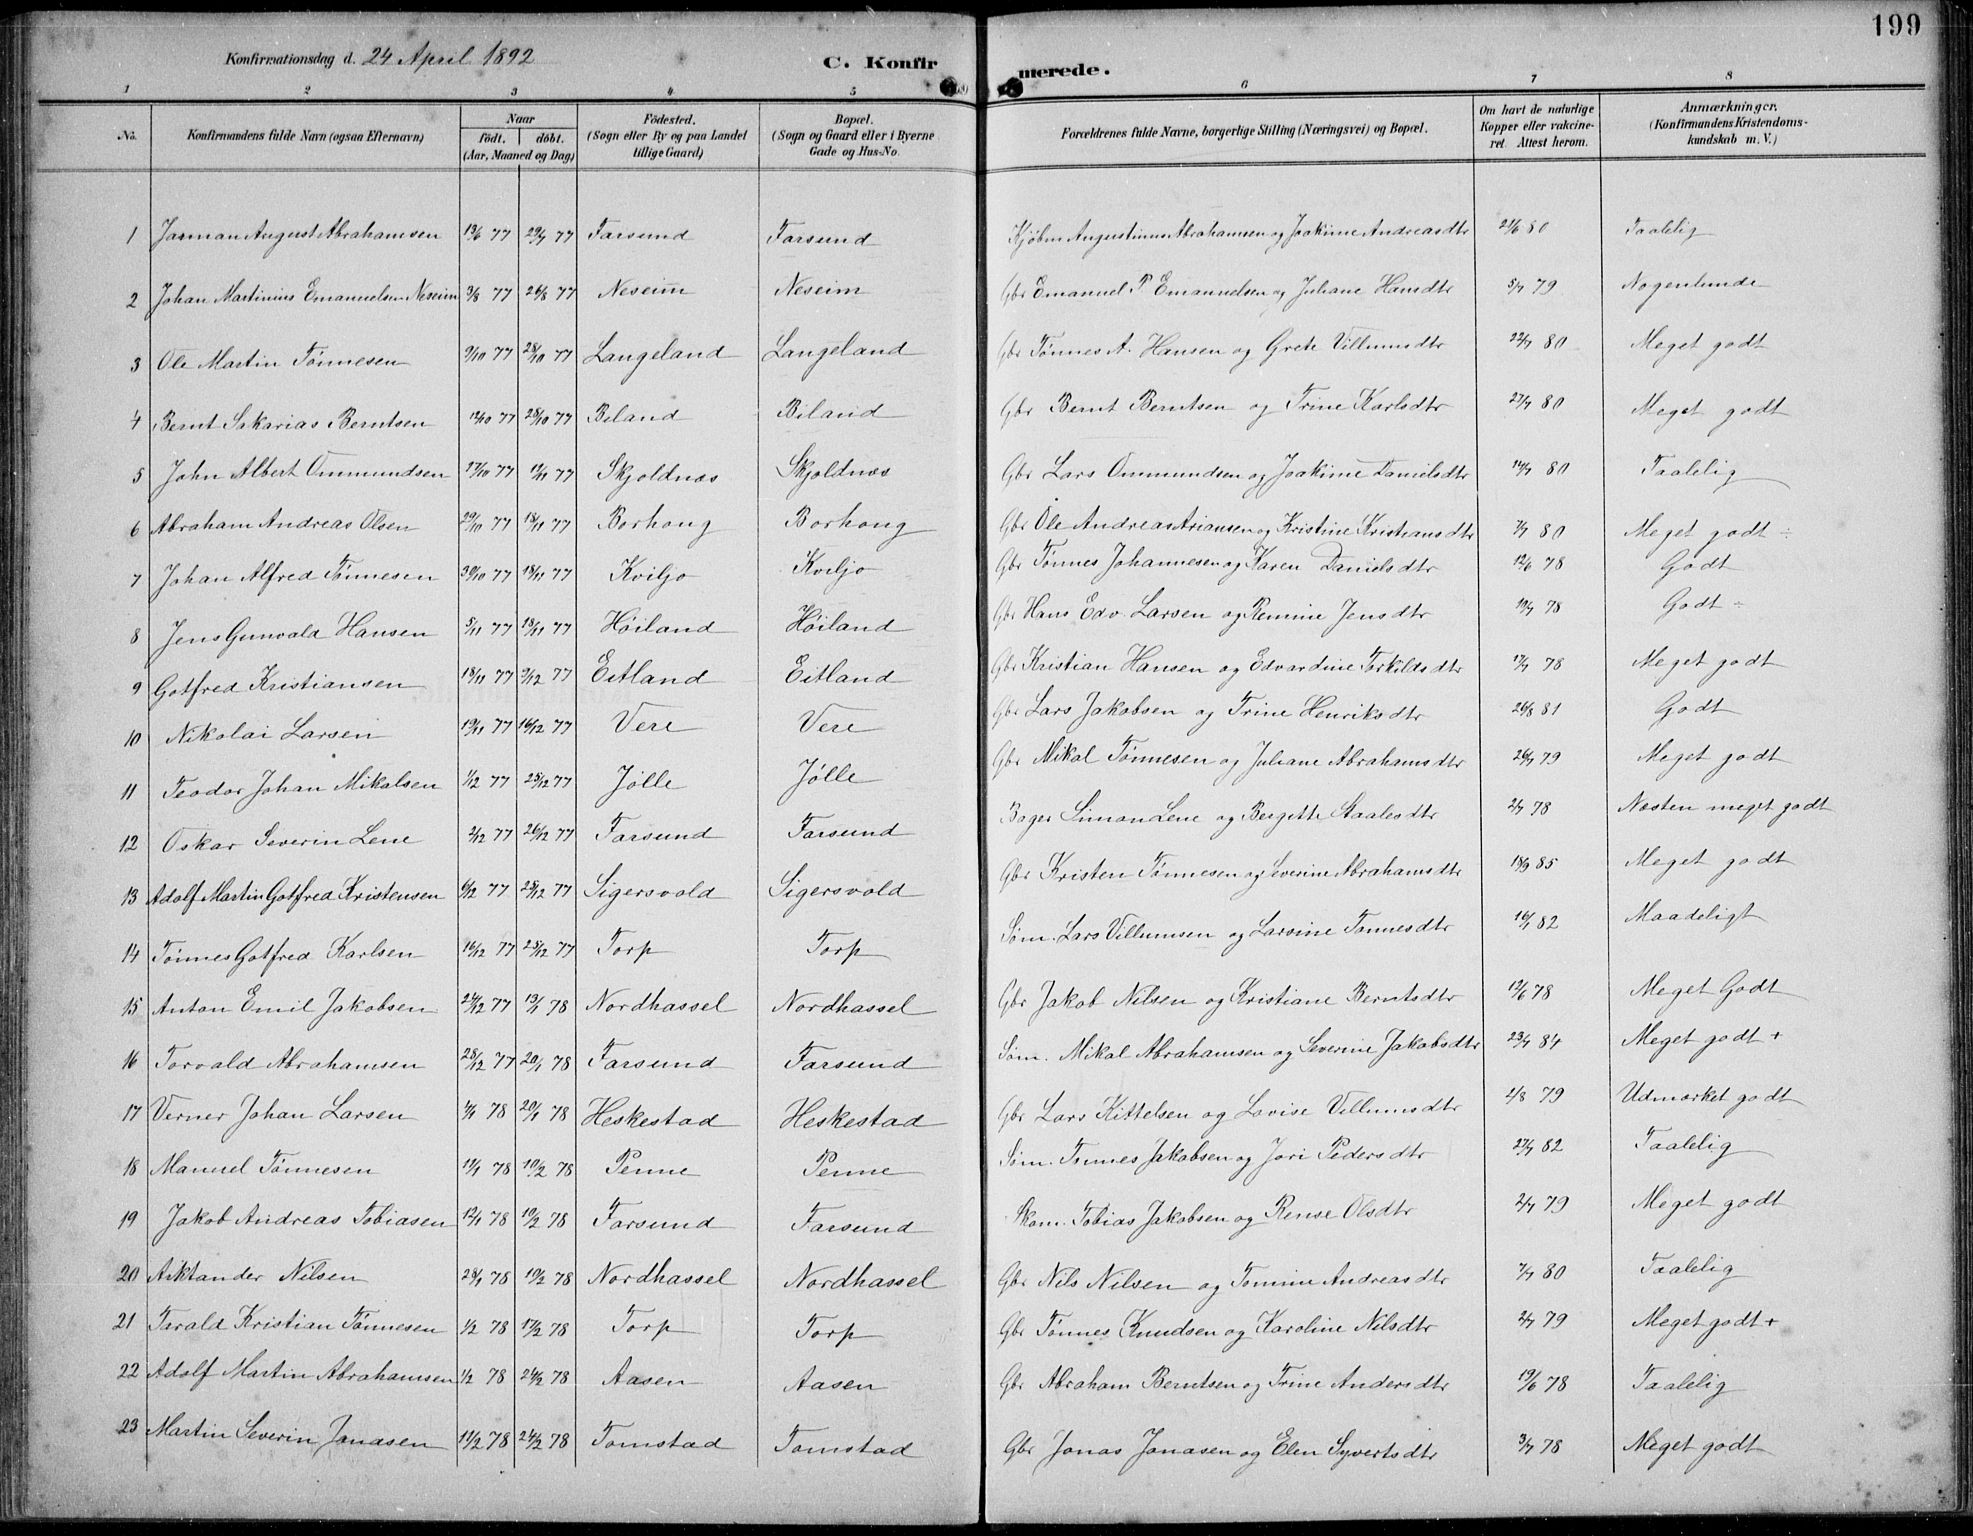 199
Konfirmationsdag d. 24 April 1892 C. Konfirmerede.
1 2 3 4 5 6 7 8
No. Konfirmandens fulde Navn (ogsaa Efternavn) Naar födt. döbt. (Aar, Maaned og Dag) Födested. (Sogn eller By og paa Landet tillige Gaard) Bopæl. (Sogn og Gaard eller i Byerne Gade og Hus-No. Forældrenes fulde Navne, borgerlige Stilling (Næringsvei) og Bopæl. Om havt de naturlige Kopper eller vakcineret. Attest herom. Anmærkninger. (Konfirmandens Kristendomskundskab m. V.)
1 Jarman August Abrahamsen 19/6 77 29/7 77 Farsund Farsund Kjøbm Augustinus Abrahamsen og Joakime Andreasdtr 21/6 80 Taalelig
2 Johan Martinius Emanuelsen Neseim 3/8 77 26/8 77 Neseim Neseim Gbr Emanuel P Emanuelsen og Juliane Hansdtr 5/7 79 Nogenlunde
3 Ole Martin Tønnesen 9/10 77 28/10 77 Langeland Langeland Gbr Tønnes A. Hansen og Grete Villumsdtr 22/7 80 Meget godt
4 Bernt Sakarias Berntsen 12/10 77 28/10 77 Biland Biland Gbr Bernt Berntsen og Trine Karlsdtr 27/7 80 Meget godt
5 John Albert Ommundsen 17/10 77 11/11 77 Skjoldnæs Skjoldnæs Gbr Lars Ommundsen og Joakime Danielsdtr 14/7 80 Taalelig
6 Abraham Andreas Olsen 29/10 77 18/11 77 Borhoug Borhoug Gbr Ole Andreas Ariansen og Kristine Kristiansdtr 7/7 80 Meget godt ÷
7 Johan Alfred Tønnesen 30/10 77 18/11 77 Kviljo Kviljo Gbr Tønnes Johannesen og Karen Danielsdtr 12/6 78 Godt
8 Jens Gunvald Hansen 5/11 77 18/11 77 Høiland Høiland Gbr Hans Edv. Larsen og Remine Jensdtr 10/7 78 Godt ÷
9 Gotfred Kristiansen 18/11 77 9/12 77 Eitland Eitland Gbr Kristian Hansen og Edvardine Torkildsdtr 17/7 78 Meget godt
10 Nikolai Larsen 19/11 77 16/12 77 Vere Vere Gbr Lars Jakobsen og Trine Henriksdtr 26/8 81 Godt
11 Teodor Johan Mikalsen 1/12 77 25/12 77 Jølle Jølle Gbr Mikal Tønnesen og Juliane Abrahamsdtr 26/7 79 Meget godt
12 Oskar Severin Lene 2/12 77 26/12 77 Farsund Farsund Bager Simon Lene og Bergette Staalesdtr 2/7 78 Næsten meget godt
13 Adolf Martin Gotfred Kristensen 6/12 77 25/12 77 Sigersvold Sigersvold Gbr Kristen Tønnesen og Severine Abrahamsdtr 18/9 85 Meget godt
14 Tønnes Gotfred Karlsen 16/12 77 25/12 77 Torp Torp Søm. Lars Villumsen og Larsine Tønnesdtr 82 Maadeligt
15 Anton Emil Jakobsen 24/12 77 13/1 78 Nordhassel Nordhassel Gbr Jakob Nilsen og Kristiane Berntsdtr 12/6 78 Meget Godt
16 Torvald Abrahamsen 28/12 77 20/1 78 Farsund Farsund Søm. Mikal Abrahamsen og Severine Jakobsdtr 23/7 84 Meget godt +
17 Verner Johan Larsen 4/1 78 20/1 78 Heskestad Heskestad Gbr Lars Kittelsen og Lovise Villumsdtr 2/8 79 Udmærket godt
18 Manuel Tønnesen 11/1 78 10/2 78 Penne Penne Søm. Tønnes Jakobsen og Jori Pedersdtr 27/7 82 Taalelig
19 Jakob Andreas Tobiasen 12/1 78 10/2 78 Farsund Farsund Skom. Tobias Jakobsen og Rense Olsdtr 2/7 79 Meget godt
20 Arktander Nilsen 28/1 78 10/2 78 Nordhassel Nordhassel Gbr Nils Nilsen og Tomine Andreasdtr 7/7 80 Taalelig
21 Tarald Kristian Tønnesen 1/2 78 17/2 78 Torp Torp Gbr Tønnes Knudsen og Karoline Nilsdtr 2/7 79 Meget godt +
22 Adolf Martin Abrahamsen 1/2 78 24/2 78 Aasen Aasen Gbr Abraham Berntsen og Trine Andersdtr 19/6 78 Taalelig
23 Martin Severin Jonasen 11/2 78 24/2 78 Tomstad Tomstad Gbr Jonas Jonasen og Elen Syvertsdtr 3/7 78 Meget godt